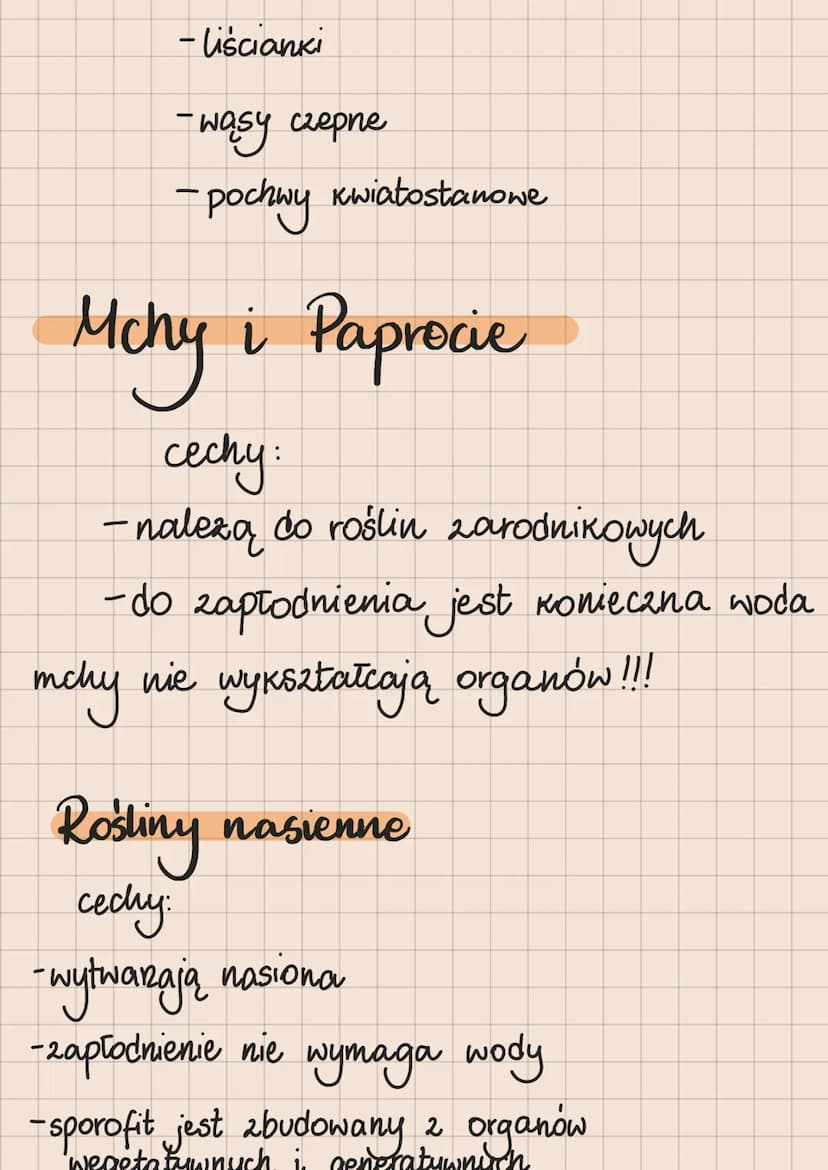 - liścianki
- wąsy czepne
- pochwy kwiatostanowe
Mchy i Paprocie
cechy:
- należą do roślin zarodnikowych
- do zapłodnienia jest konieczna woda
mchy nie wykształcają organów!!!
Rośliny nasienne
cechy:
- wytwarzają nasiona
- zapłodnienie nie wymaga wody
- sporofit jest zbudowany z organów
wegetatywnych i generatywnych